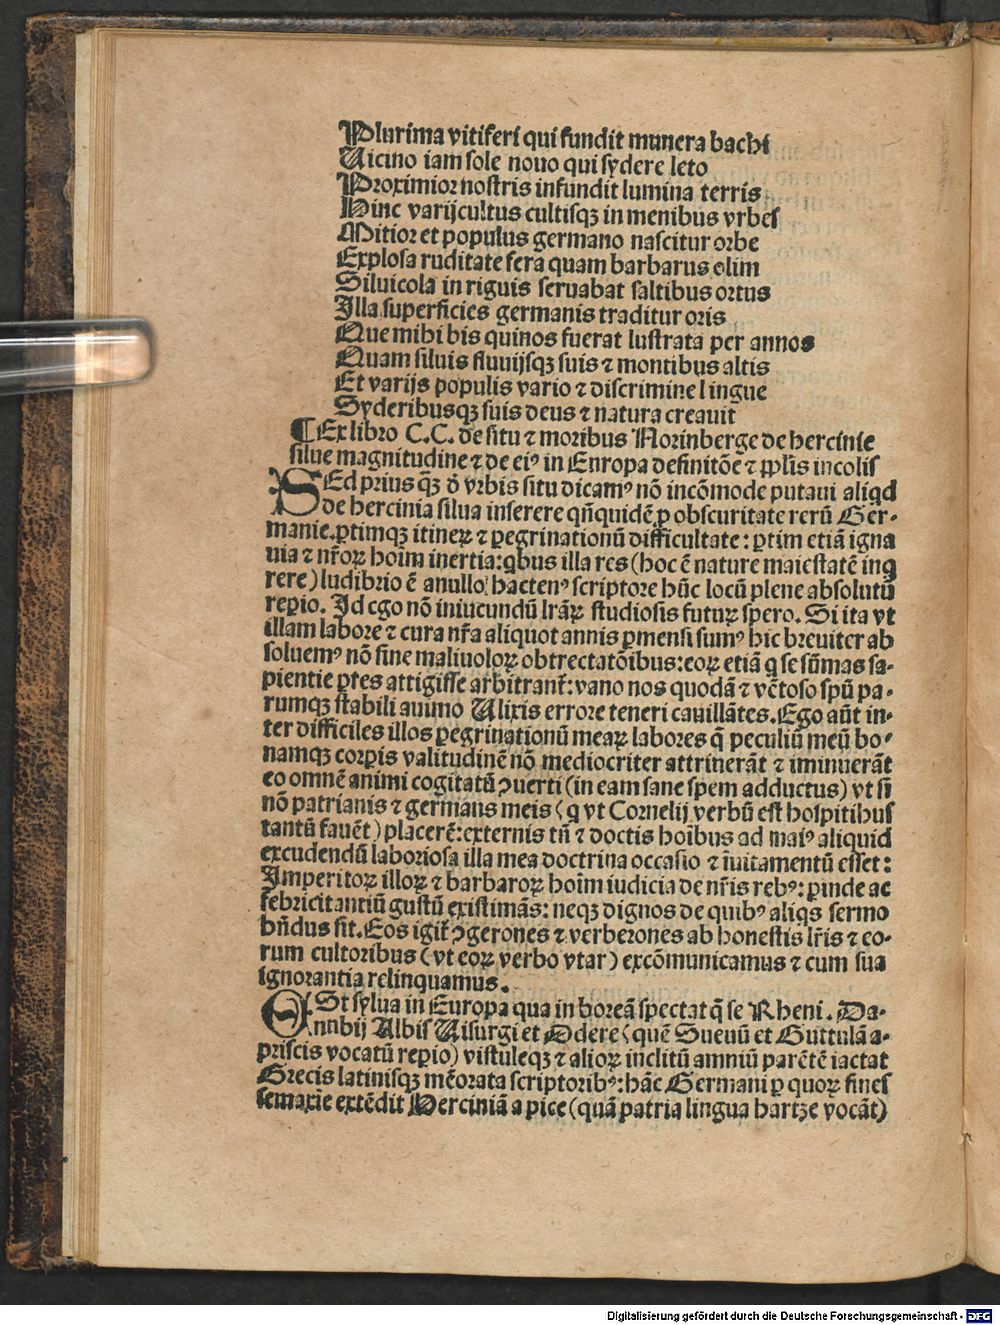 Plurima vitiferi qui fundit munera bachi
Uicino iam sole nouo qui sydere leto
Proximior nostris infundit lumina terris
Hinc varijcultus cultisqꝫ in menibus vrbes
Mitior et populus germano nascitur orbe
Explosa ruditate fera quam barbarus olim
Siluicola in riguis seruabat saltibus ortus
Illa superficies germanis traditur oris
Que mihi bis quinos fuerat lustrata per annos
Quam siluis fluuijsqꝫ suis ⁊ montibus altis
Et varijs populis vario ⁊ discrimine lingue
Syderibusqꝫ suis deus ⁊ natura creauit
¶ Ex libro C.C. de situ ⁊ moribus Norinberge de hercinie
silue magnitudine ⁊ de eiꝰ in Enropa definitōe ⁊ ꝓplis incolis
SEd prius qꝫ ď vrbis situ dicamꝰ nō incōmode putaui aliqd
de hercinia silua inserere qn̄quidē ꝓ obscuritate rerū Ger-
manie.ꝑtimqꝫ itineꝝ ⁊ ꝑegrinationū difficultate: ꝑtim etiā igna
uia ⁊ nr̄oꝝ hoīm inertia:qbus illa res (hoc ē nature maiestatē inq
rere) ludibrio ē a nullo hactenꝰ scriptore hūc locū plene absolutū
reꝑio. Id ego nō iniucundū lr̄aꝝ studiosis futuꝝ spero. Si ita vt
illam labore ⁊ cura nr̄a aliquot annis ꝑmensi sumꝰ hic breuiter ab
soluemꝰ nō sine maliuoloꝝ obtrectatōibus:eoꝝ etiā q se sūmas sa-
pientie ꝑtes attigisse arbitrant̄: vano nos quodā ⁊ vētoso spū pa-
rumqꝫ stabili auimo Ulixis errore teneri cauillātes. Ego aūt in-
ter difficiles illos ꝑegrinationū meaꝝ labores q̄ peculiū meū bo-
namqꝫ corꝑis valitudinē nō mediocriter attriuerāt ⁊ iminuerāt
eo omnē animi cogitatū ꝯuerti (in eam sane spem adductus) vt si
nō patrianis ⁊ germanis meis (q vt Cornelij verbū est hospitibus
tantū fauēt) placerē: externis tn̄ ⁊ doctis hoībus ad maiꝰ aliquid
excudendū laboriosa illa mea doctrina occasio ⁊ īuitamentū esset:
Imperitoꝝ illoꝝ ⁊ barbaroꝝ hoīm iudicia de nr̄is rebꝰ: ꝑinde ac
febricitantiū gustū existimās: neqꝫ dignos de quibꝰ aliqs sermo
hn̄dus sit. Eos igit̄ ꝯgerones ⁊ verberones ab honestis lr̄is ⁊ eo-
rum cultoribus (vt eoꝝ verbo vtar) excōmunicamus ⁊ cum sua
ignorantia relinquamus.
ESt sylua in Europa qua in boreā spectat q̄ se Rheni. Da-
nnbij Albis Uisurgi et Odere (quē Sueuū et Guttulā a-
priscis vocatū reꝑio) vistuleqꝫ ⁊ alioꝝ inclitū amniū parētē iactat
Grecis latinisqꝫ mēorata scriptoribꝰ: hāc Germani ꝑ quoꝝ fines
se maxīe extēdit Herciniā a pice (quā patria lingua hartze vocāt)
Digitalisierung gefördert durch die Deutsche Forschungsgemeinschaft - DFG